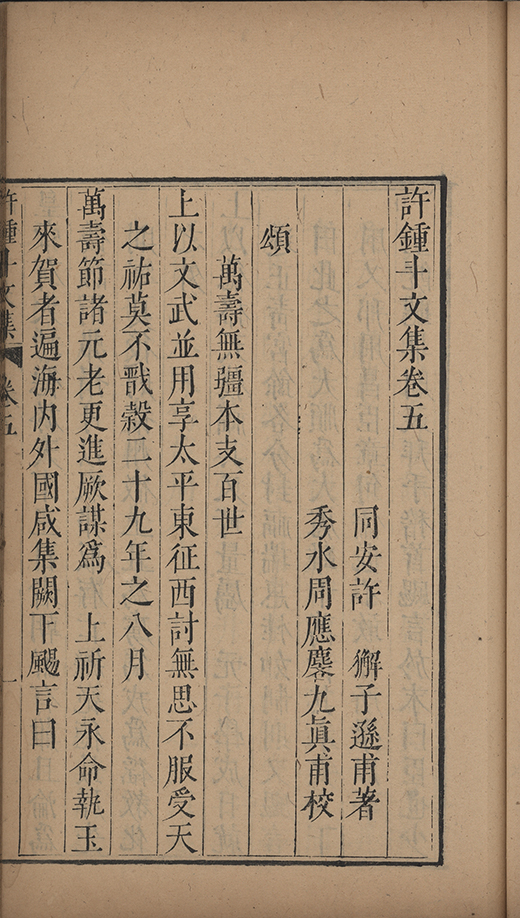 許鍾斗文集卷五
同安許 獬子遜甫著
秀水周應麐九眞甫校
頌
萬壽無疆本支百世
上以文武並用享太平東征西討無思不服受天
之祐莫不戩穀二十九年之八月
萬壽節諸元老更進厥謀爲 上祈天永命執玉
來賀者遍海内外國咸集闕下颺言曰
許鍾斗文集 卷五 一